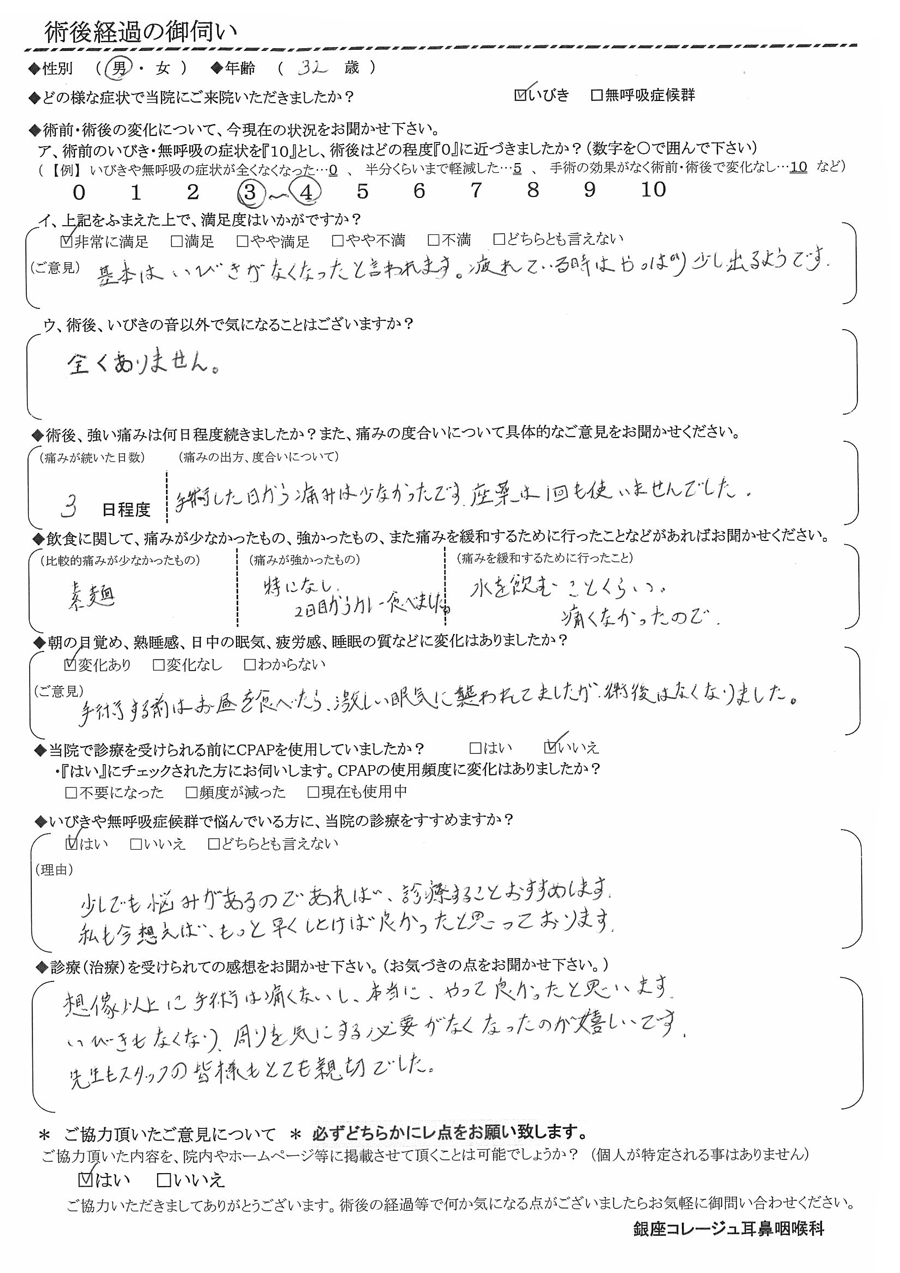 術後経過の御伺い
◆性別 （ 男 ・ 女 ） ◆年齢 （ 32 歳 ）
◆どの様な症状で当院にご来院いただきましたか？ ☑いびき □無呼吸症候群
◆術前・術後の変化について、今現在の状況をお聞かせ下さい。
ア、術前のいびき・無呼吸の症状を『10』とし、術後はどの程度『0』に近づきましたか？（数字を〇で囲んで下さい）
（【例】 いびきや無呼吸の症状が全くなくなった…0 、 半分くらいまで軽減した…5 、 手術の効果がなく術前・術後で変化なし…10 など）
0 1 2 3 ～ 4 5 6 7 8 9 10
イ、上記をふまえた上で、満足度はいかがですか？
☑非常に満足 □満足 □やや満足 □やや不満 □不満 □どちらとも言えない
（ご意見） 基本はいびきがなくなったと言われます。疲れている時はやっぱり少し出るようです.
ウ、術後、いびきの音以外で気になることはございますか？
全くありません。
◆術後、強い痛みは何日程度続きましたか？また、痛みの度合いについて具体的なご意見をお聞かせください。
（痛みが続いた日数） （痛みの出方、度合いについて）
3 日程度 手術した日から痛みは少なかったです.座薬は1回も使いませんでした.
◆飲食に関して、痛みが少なかったもの、強かったもの、また痛みを緩和するために行ったことなどがあればお聞かせください。
（比較的痛みが少なかったもの） （痛みが強かったもの） （痛みを緩和するために行ったこと）
素麺 特になし. 水を飲むことくらい。
2日目からカレー食べました。 痛くなかったので.
◆朝の目覚め、熟睡感、日中の眠気、疲労感、睡眠の質などに変化はありましたか？
☑変化あり □変化なし □わからない
（ご意見） 手術する前はお昼を食べたら、激しい眠気に襲われてましたが、術後はなくなりました。
◆当院で診療を受けられる前にCPAPを使用していましたか？ □はい ☑いいえ
・『はい』にチェックされた方にお伺いします。CPAPの使用頻度に変化はありましたか？
□不要になった □頻度が減った □現在も使用中
◆いびきや無呼吸症候群で悩んでいる方に、当院の診療をすすめますか？
☑はい □いいえ □どちらとも言えない
（理由）
少しでも悩みがあるのであれば、診療することおすすめします.
私も今想えば、もっと早くしとけば良かったと思っております.
◆診療（治療）を受けられての感想をお聞かせ下さい。（お気づきの点をお聞かせ下さい。）
想像以上に手術は痛くないし、本当に、やって良かったと思います.
いびきもなくなり、周りを気にする必要がなくなったのが嬉しいです.
先生もスタッフの皆様もとても親切でした。
＊ ご協力頂いたご意見について ＊ 必ずどちらかにレ点をお願い致します。
ご協力頂いた内容を、院内やホームページ等に掲載させて頂くことは可能でしょうか？ （個人が特定される事はありません）
☑はい □いいえ
ご協力いただきましてありがとうございます。術後の経過等で何か気になる点がございましたらお気軽に御問い合わせください。
銀座コレージュ耳鼻咽喉科